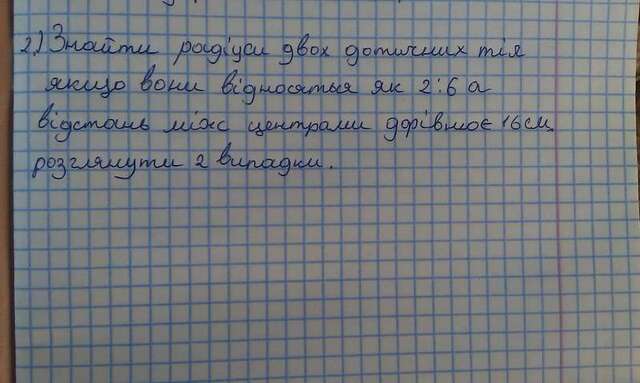 2.) Знайти радіуси двох дотичних тіл
якщо вони відносяться як 2:6 а
відстань між центрами дорівнює 16 см.
розглянути 2 випадки.